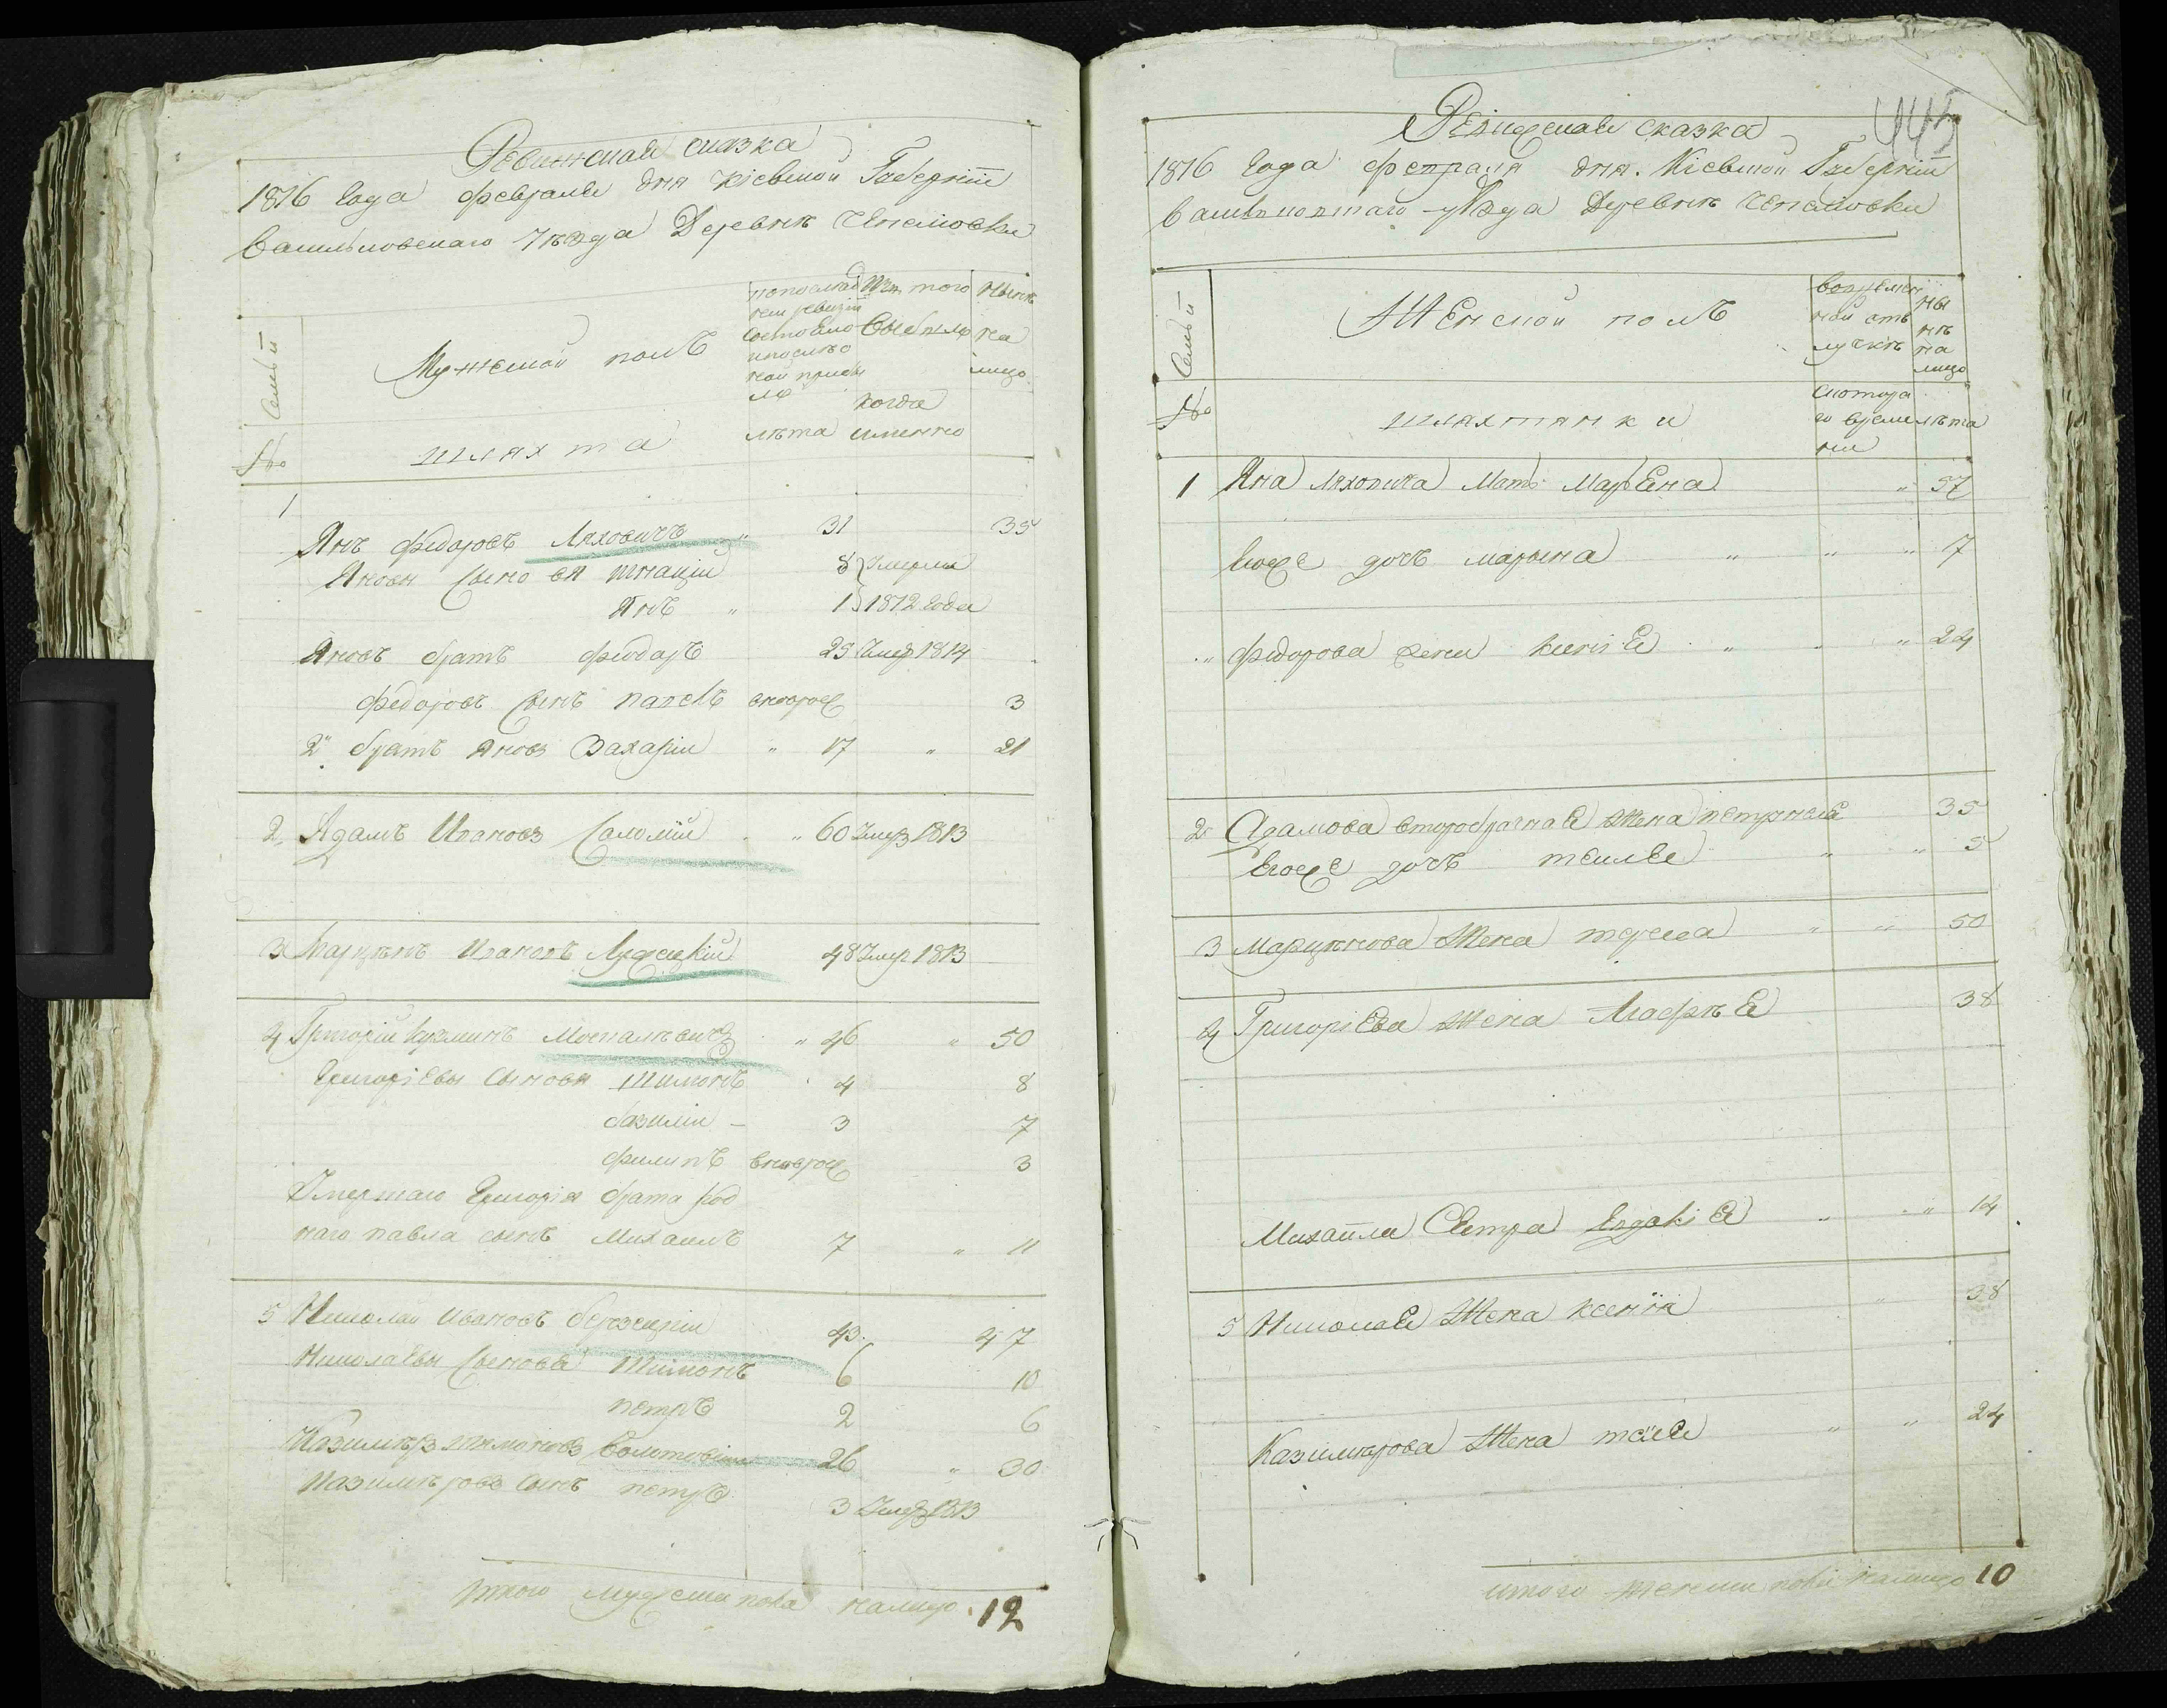 Ревижская сказка
1816 года февраля дня Кіевской Губерніи
Васильковскаго уѣзда Деревнѣ Чепелиовки
Семьи
№
Мужеской полъ
шляхта
по последней ревизіи состояло и после оной прибыло
лѣта
Изъ того выбыло
когда именно
Нынѣ на лицо
1
Янъ Федоровъ Ляховичъ „ 31 35
Яновы сыновя Игнацій 8 Умерли
Янъ „ 1 1812 года
Яновъ братъ Феодоръ 25 Умер 1814
Федоровъ сынъ Павелъ внов рож 3
2й братъ Яновъ Захарій „ 17 „ 21
2 Адамъ Ивановъ Саломій „ 60 Умер 1813
3 Марцѣнъ Ивановъ 48 Умер 1813
4 Григорій Кузминъ Москалѣвичъ „ 46 „ 50
Григоріевы сыновя Шимонъ 4 8
базилій – 3 7
филипъ внов рож 3
Умершаго Григорія брата род
наго павла сынъ Михаилъ 7 „ 11
5 Николай Ивановъ 43 47
Николаевы сыновя Шимонъ 6 10
петръ 2 6
Казимѣръ Шимоновъ 26 „ 30
Казимѣровъ сынъ петръ 3 Умер 1813
Итого мужеска пола налицо 12
445
Ревижская сказка
1816 года февраля дня Кіевской Губерніи
Васильковскаго уѣзда Деревнѣ Чепелиовки
Семьи
№
Женской полъ
шляхтянки
во временной отлучкѣ
с котораго времени
ны
нѣ
на
лицо
лѣта
1 Яна Ляховича Мать Марьена „ 57
Егоже дочь марьина „ „ „ 17
„ Федорова жена Ксенія „ „ „ 24
2 Адамова второбрачная Жена петрнеля 35
Егоже дочь текиля „ „ 5
3 Марцинова Жена тереса „ „ 50
4 Григоріева Жена Агафія 38
Михайла Сестра Евдокія „ „ 14
5 Николая Жена ксенія „ 38
Казимѣрова Жена таися „ „ 24
итого женска пола налицо 10